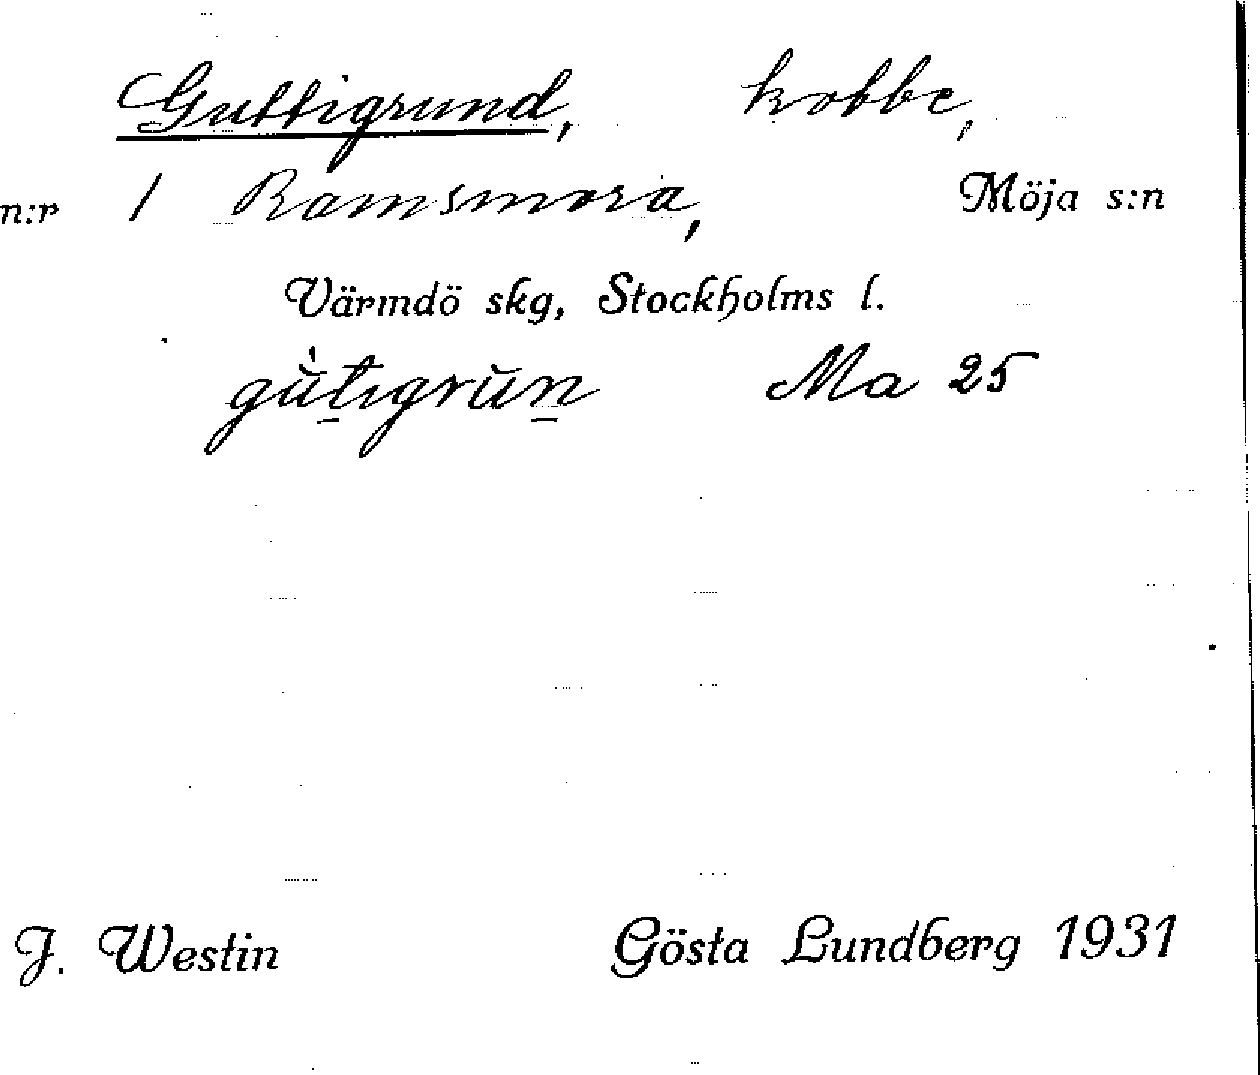 Guttigrund, kobbe,
n:r 1 Ramsmora, Möja s:n
Värmdö skg, Stockholms l.
gùtıgrŭn Ma 25
J. Westin Gösta Lundberg 1931